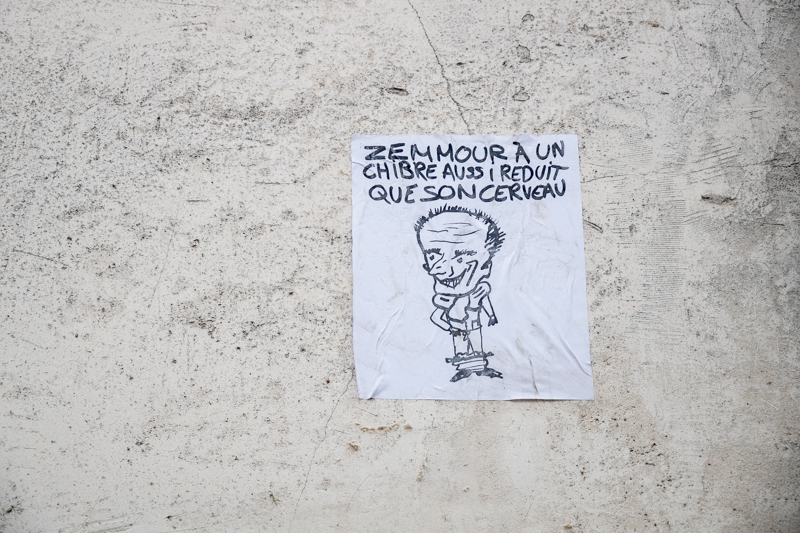 ZEMMOUR À UN
CHIBRE AUSSI REDUIT
QUE SON CERVEAU